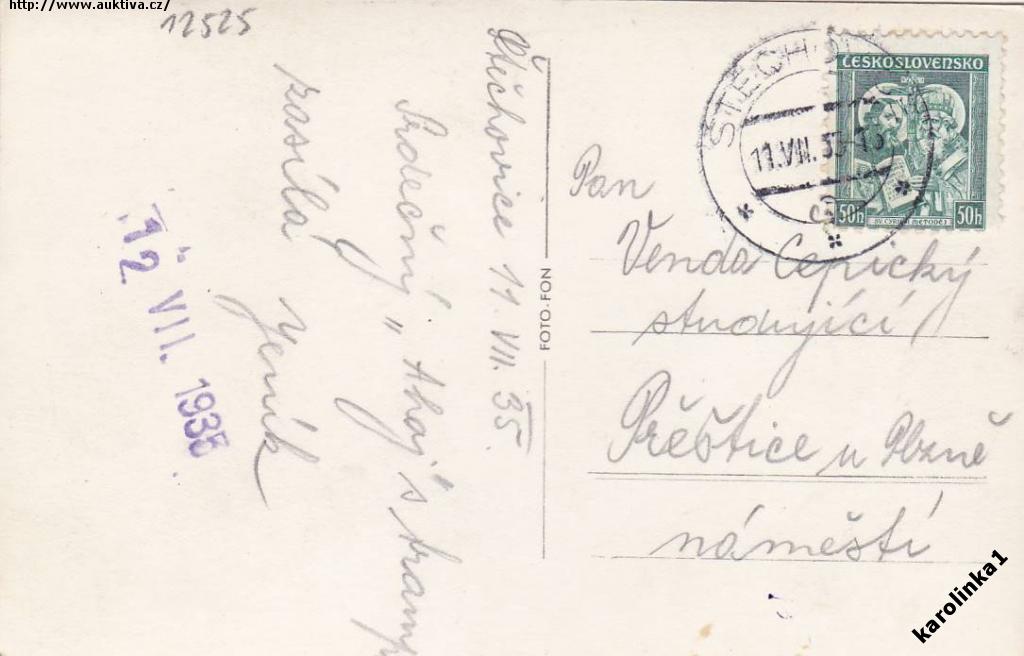 http://www.auktiva.cz/
12525
Štěchovice 11. VII. 35.
Srdečný „Ahoj" s tramp
zasílá Jeník
12. VII. 1935
FOTO-FON
ČESKOSLOVENSKO
50h
50h
SV. CYRIL A METODĚJ
11.VII.35
Pan
Venda Cepický
studující
Přeštice u Plzně
náměstí
karolinka1